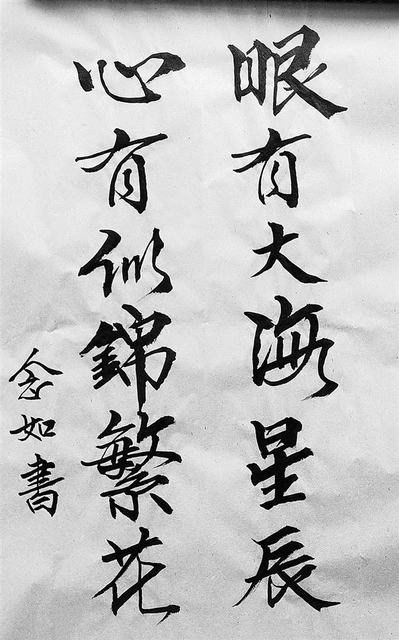 眼有大海星辰
心有似錦繁花
念如書